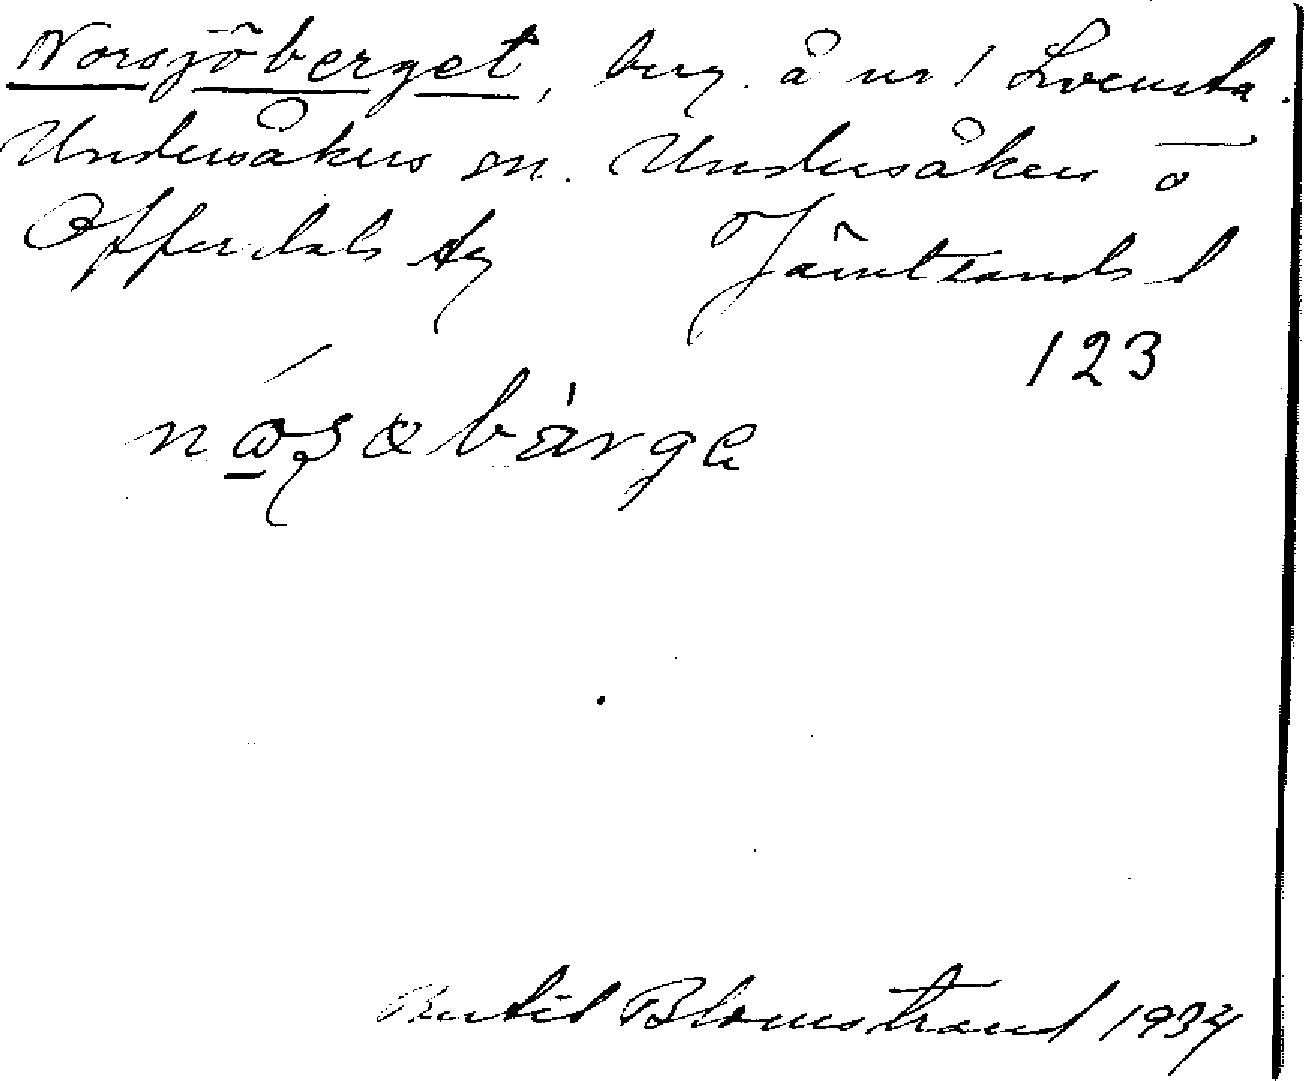 Norsjöberget, berg å nr 1 Svensta.
Undersåkers sn. Undersåkers o
Offerdals tg Jämtlands l
123
Bertil Blomstrand 1934